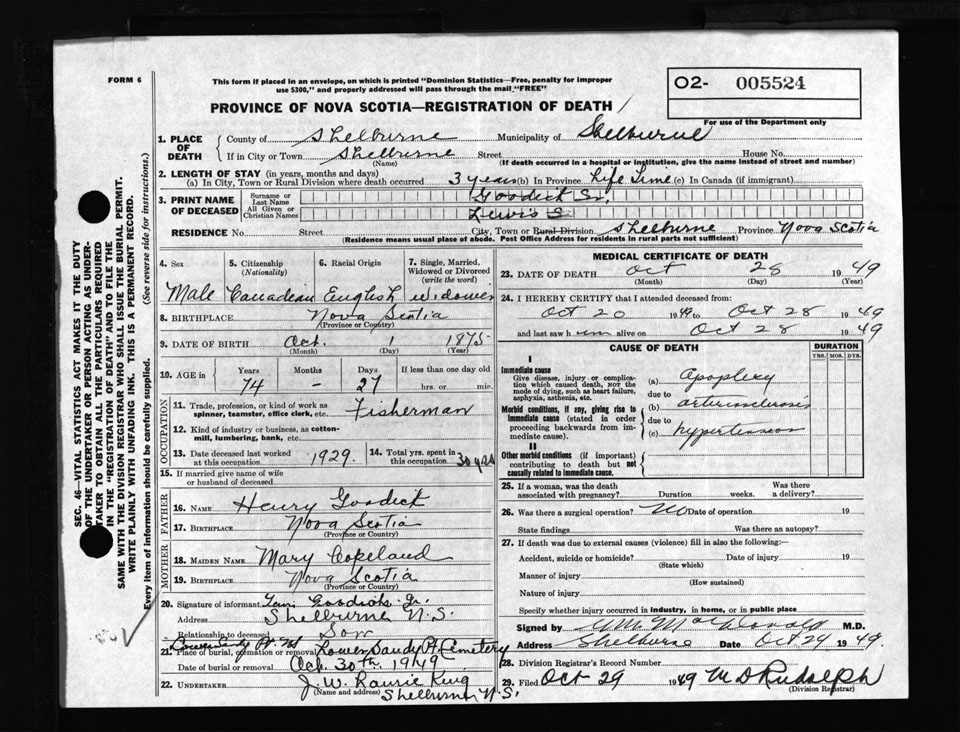 FORM 6
This form if placed in an envelope, on which is printed "Dominion Statistics—Free, penalty for improper
use $300," and properly addressed will pass through the mail "FREE"
O2- 005524
For use of the Department only
PROVINCE OF NOVA SCOTIA—REGISTRATION OF DEATH
1. PLACE OF DEATH
County of Shelburne Municipality of Shelburne
If in City or Town Shelburne Street House No.
(Name) (If death occurred in a hospital or institution, give the name instead of street and number)
2. LENGTH OF STAY (in years, months and days)
(a) In City, Town or Rural Division where death occurred 3 years (b) In Province Life Time (c) In Canada (if immigrant)
3. PRINT NAME OF DECEASED
Surname or Last Name Goodick Sr.
All Given or Christian Names Lewis S.
RESIDENCE No. Street City, Town or Rural Division Shelburne Province Nova Scotia
(Residence means usual place of abode. Post Office Address for residents in rural parts not sufficient)
4. Sex
Male
5. Citizenship
(Nationality)
Canadian
6. Racial Origin
English
7. Single, Married,
Widowed or Divorced
(write the word)
widower
8. BIRTHPLACE Nova Scotia
(Province or Country)
9. DATE OF BIRTH Oct. 1 1875
(Month) (Day) (Year)
10. AGE in
Years Months Days If less than one day old
74 – 27 hrs. or min.
OCCUPATION
11. Trade, profession, or kind of work as
spinner, teamster, office clerk, etc. Fisherman
12. Kind of industry or business, as cotton-
mill, lumbering, bank, etc.
13. Date deceased last worked
at this occupation 1929.
14. Total yrs. spent in
this occupation 30 yrs
15. If married give name of wife
or husband of deceased
FATHER
16. NAME Henry Goodick
17. BIRTHPLACE Nova Scotia
(Province or Country)
MOTHER
18. MAIDEN NAME Mary Copeland
19. BIRTHPLACE Nova Scotia
(Province or Country)
20. Signature of informant Goodick Jr.
Address Shelburne N.S.
Relationship to deceased Son
21. Place of burial, cremation or removal Lower Sandy Pt. Cemetery
Date of burial or removal Oct. 30th. 1949
22. UNDERTAKER J.W. King
(Name and address) Shelburne N.S.
MEDICAL CERTIFICATE OF DEATH
23. DATE OF DEATH Oct 28 1949
(Month) (Day) (Year)
24. I HEREBY CERTIFY that I attended deceased from:
Oct 20 1949 to Oct 28 1949
and last saw him alive on Oct 28 1949
CAUSE OF DEATH
DURATION
YRS. MOS. DYS.
I
Immediate cause
Give disease, injury or compli-
cation which caused death, NOT the
mode of dying, such as heart failure,
asphyxia, asthenia, etc.
(a) Apoplexy
due to
Morbid conditions, if any, giving rise to
immediate cause (stated in order
proceeding backwards from im-
mediate cause).
(b) arteriosclerosis
due to
(c) hypertension
II
Other morbid conditions (if important)
contributing to death but not
causally related to immediate cause.
25. If a woman, was the death
associated with pregnancy? Duration weeks. Was there
a delivery?
26. Was there a surgical operation? No Date of operation 19
State findings Was there an autopsy?
27. If death was due to external causes (violence) fill in also the following:—
Accident, suicide or homicide? Date of injury 19
(State which)
Manner of injury
(How sustained)
Nature of injury
Specify whether injury occurred in industry, in home, or in public place
Signed by M.D.
Address Shelburne Date Oct 29 1949
28. Division Registrar's Record Number
29. Filed Oct 29 1949 M D Rudolph
(Division Registrar)
SEC. 46—VITAL STATISTICS ACT MAKES IT THE DUTY
OF THE UNDERTAKER OR PERSON ACTING AS UNDER-
TAKER TO OBTAIN ALL THE PARTICULARS REQUIRED
IN THE "REGISTRATION OF DEATH" AND TO FILE THE
SAME WITH THE DIVISION REGISTRAR WHO SHALL ISSUE THE BURIAL PERMIT.
WRITE PLAINLY WITH UNFADING INK. THIS IS A PERMANENT RECORD.
Every item of information should be carefully supplied. (See reverse side for instructions.)